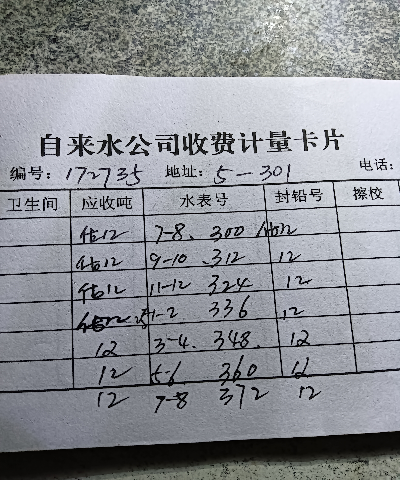 自来水公司收费计量卡片
编号: 172735 地址: 5-301 电话:
卫生间 应收吨 水表号 封铅号 擦校
估12 7-8. 300 估12
估12 9-10 .312 12
估12 11-12 324 12
估12 1-2 336 12
12 3-4. 348. 12
12 5-6 360 12
12 7-8 372 12